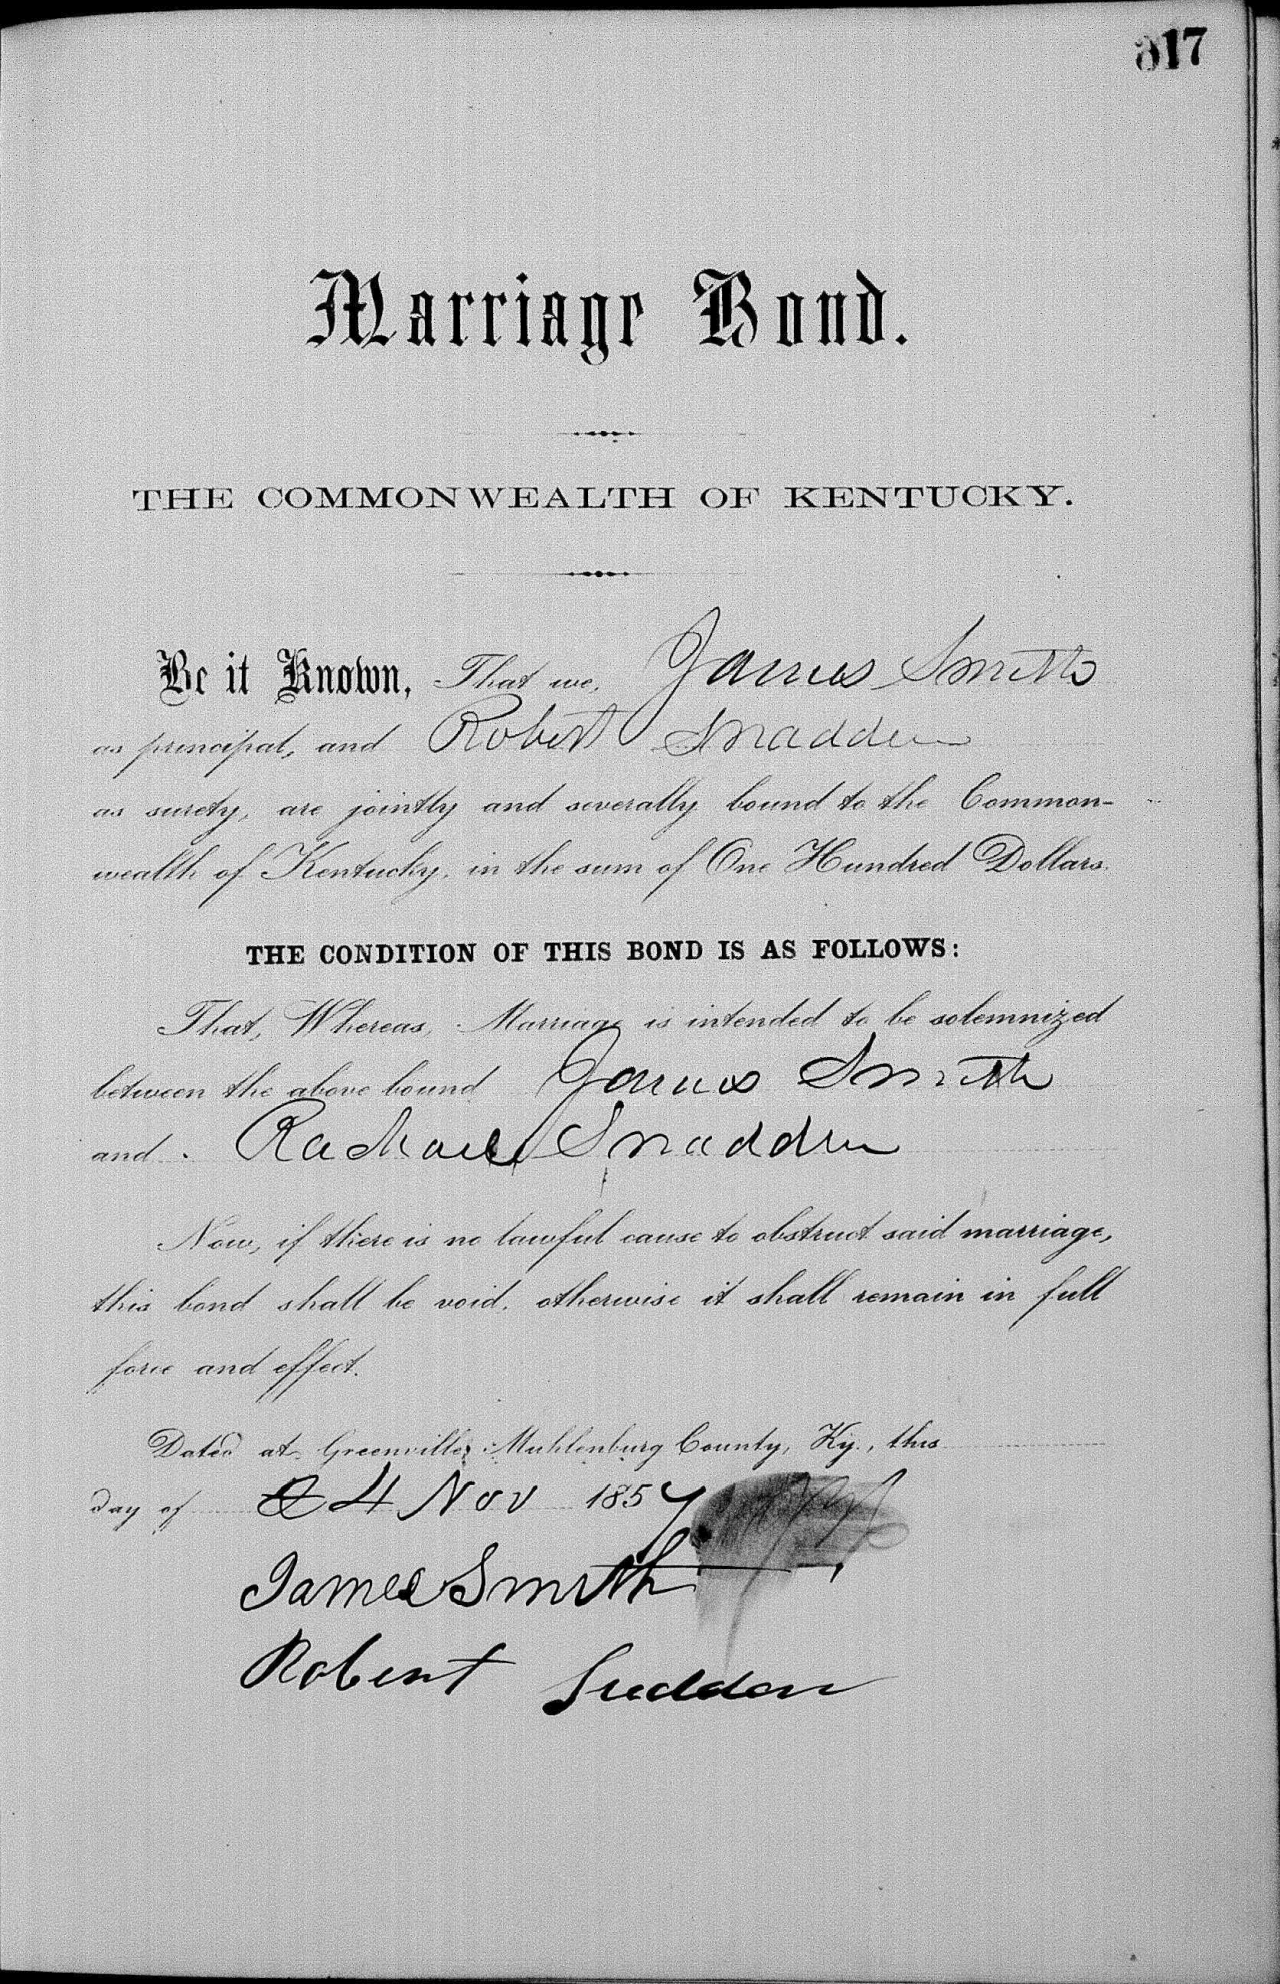 317
Marriage Bond.
THE COMMONWEALTH OF KENTUCKY.
Be it Known, That we, James Smith
as principal, and Robert Snadden
as surety, are jointly and severally bound to the Common-
wealth of Kentucky, in the sum of One Hundred Dollars.
THE CONDITION OF THIS BOND IS AS FOLLOWS:
That, Whereas, Marriage is intended to be solemnized
between the above bound James Smith
and Rachael Snadden
Now, if there is no lawful cause to obstruct said marriage,
this bond shall be void, otherwise it shall remain in full
force and effect.
Dated at Greenville, Muhlenburg County, Ky., this
day of 4 Nov 1857
James Smith
Robert Sneddon